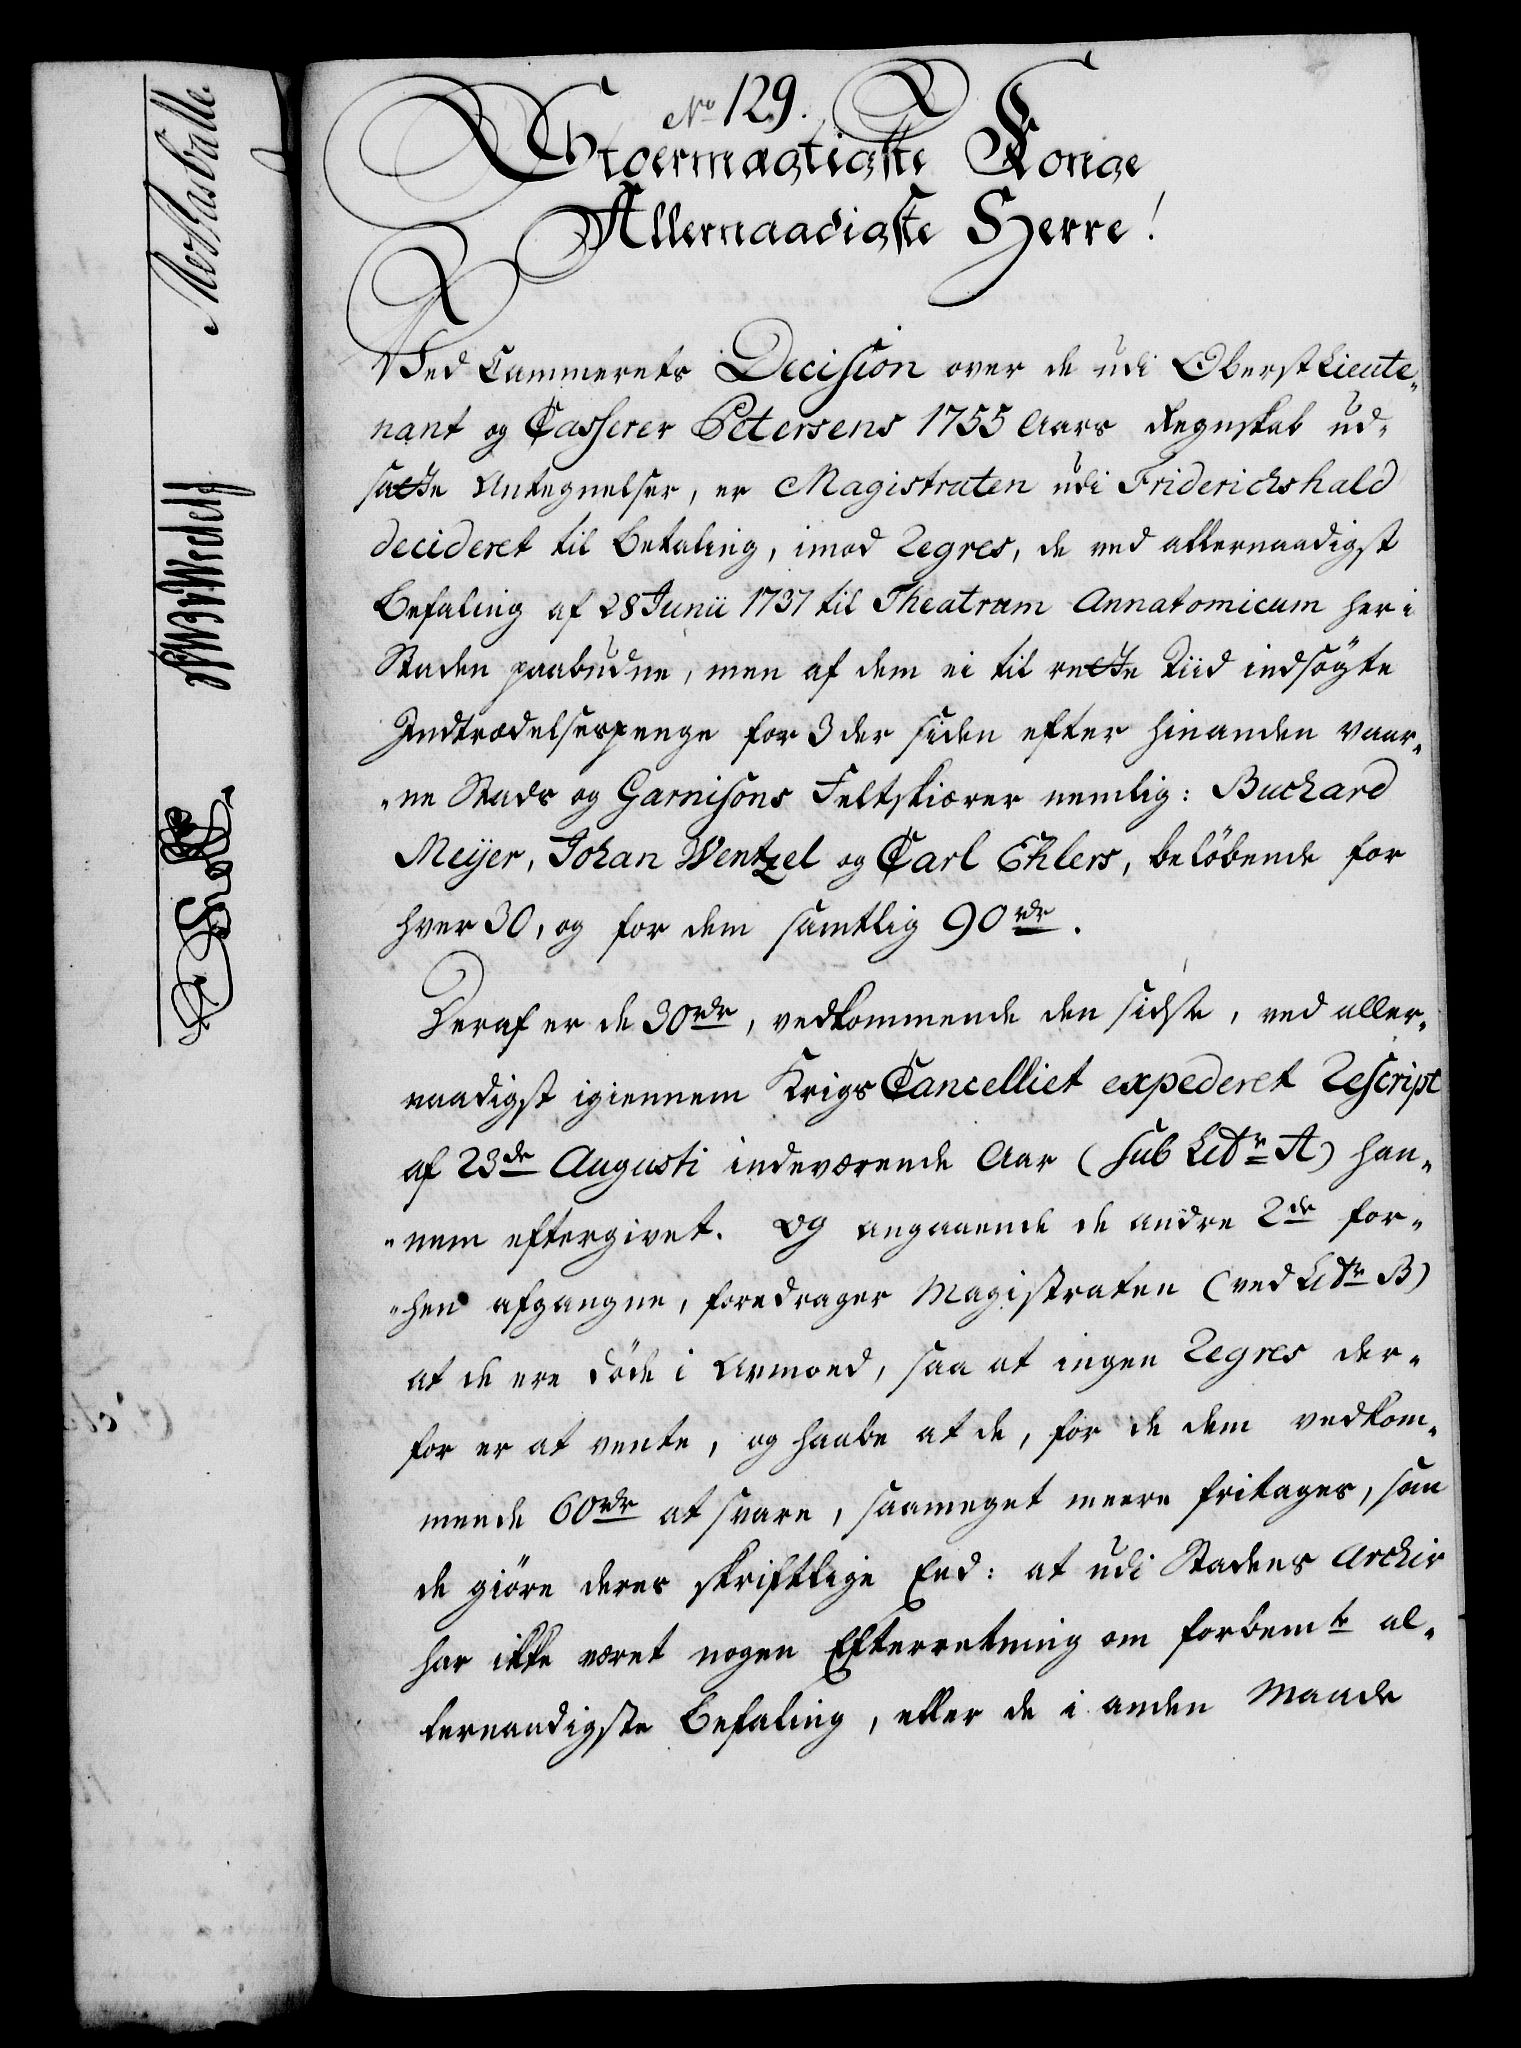 No 129.
Stoermægtigste Konge
Allernaadigste Herre!
Ved Cammerets Decision over de udi Oberst Lieute-
nant og Casserer Petersens 1755 Aars Regnskab ud-
satte Antegnelser, er Magistraten udi Friderichshald
decideret til Betaling, imod Regres, de ved allernaadigst
Befaling af 28 Junii 1737 til Theatrum Annatomicum her i
Staden paabudne, men af dem ei til rette Tiid indsøgte
Indtrædelsespenge for 3 der siden efter hinanden vaar-
ne Stads og Garnisons Feltskiærer nemlig: Buchard
Meijer, Johan Wentzel og Carl Ehlers, beløbende for
hver 30, og for dem samtlig 90 rdr.
Deraf er de 30 rdr, vedkommende den sidste, ved aller-
naadigst igiennem Krigs Cancelliet expederet Rescript
af 23de Augusti indeværende Aar (sub Litr A) han-
nem eftergivet. Og angaaende de andre 2de for-
hen afgangne, foredrager Magistraten (ved Litr B)
at de ere døde i Armoed, saa at ingen Regres der-
for er at vente, og haabe at de, for de dem vedkom-
mende 60 rdr at svare, saameget meere fritages, som
de giøre deres skriftlige Eed: at udi Stadens Archiv
har ikke været nogen Efterretning om forbemte al-
lernaadigste Befaling, eller de i anden Maade